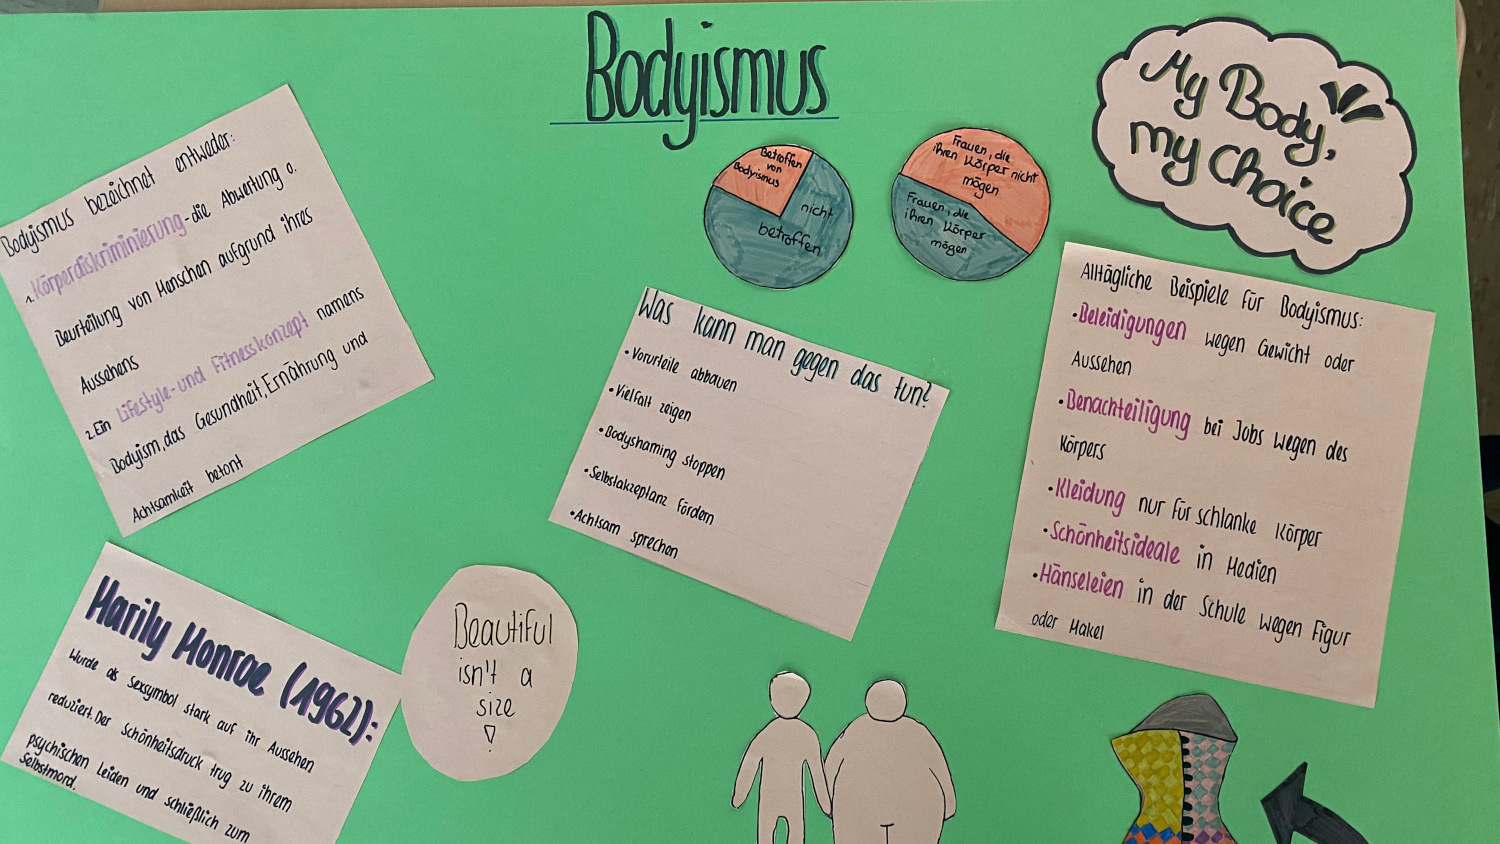 Bodyismus
My Body,
my choice
Bodyismus bezeichnet entweder:
1. Körperdiskriminierung-die Abwertung o.
Beurteilung von Menschen aufgrund ihres
Aussehens
2.Ein Lifestyle-und Fitnesskonzept namens
Bodyism,das Gesundheit,Ernährung und
Achtsamkeit betont
Betroffen
von
Bodyismus
nicht
betroffen
Frauen, die
ihren Körper nicht
mögen
Frauen, die
ihren Körper
mögen
Was kann man gegen das tun?
• Vorurteile abbauen
• Vielfalt zeigen
• Bodyshaming stoppen
• Selbstakzeptanz fördern
• Achtsam sprechen
Alltägliche Beispiele für Bodyismus:
• Beleidigungen wegen Gewicht oder
Aussehen
• Benachteiligung bei Jobs wegen des
Körpers
• Kleidung nur für schlanke Körper
• Schönheitsideale in Medien
• Hänseleien in der Schule wegen Figur
oder Makel
Marily Monroe (1962):
Wurde als Sexsymbol stark auf ihr Aussehen
reduziert. Der Schönheitsdruck trug zu ihrem
psychischen Leiden und schließlich zum
Selbstmord.
Beautiful
isn't a
size
!